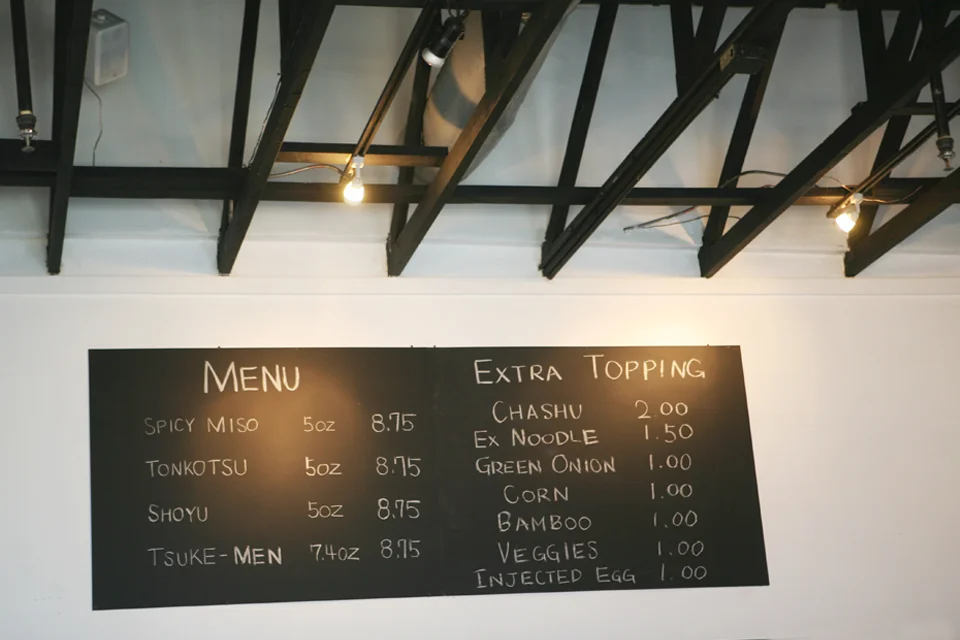 MENU
SPICY MISO 5oz 8.75
TONKOTSU 5oz 8.75
SHOYU 5oz 8.75
TSUKE-MEN 7.4oz 8.75
EXTRA TOPPING
CHASHU 2.00
EX NOODLE 1.50
GREEN ONION 1.00
CORN 1.00
BAMBOO 1.00
VEGGIES 1.00
INJECTED EGG 1.00